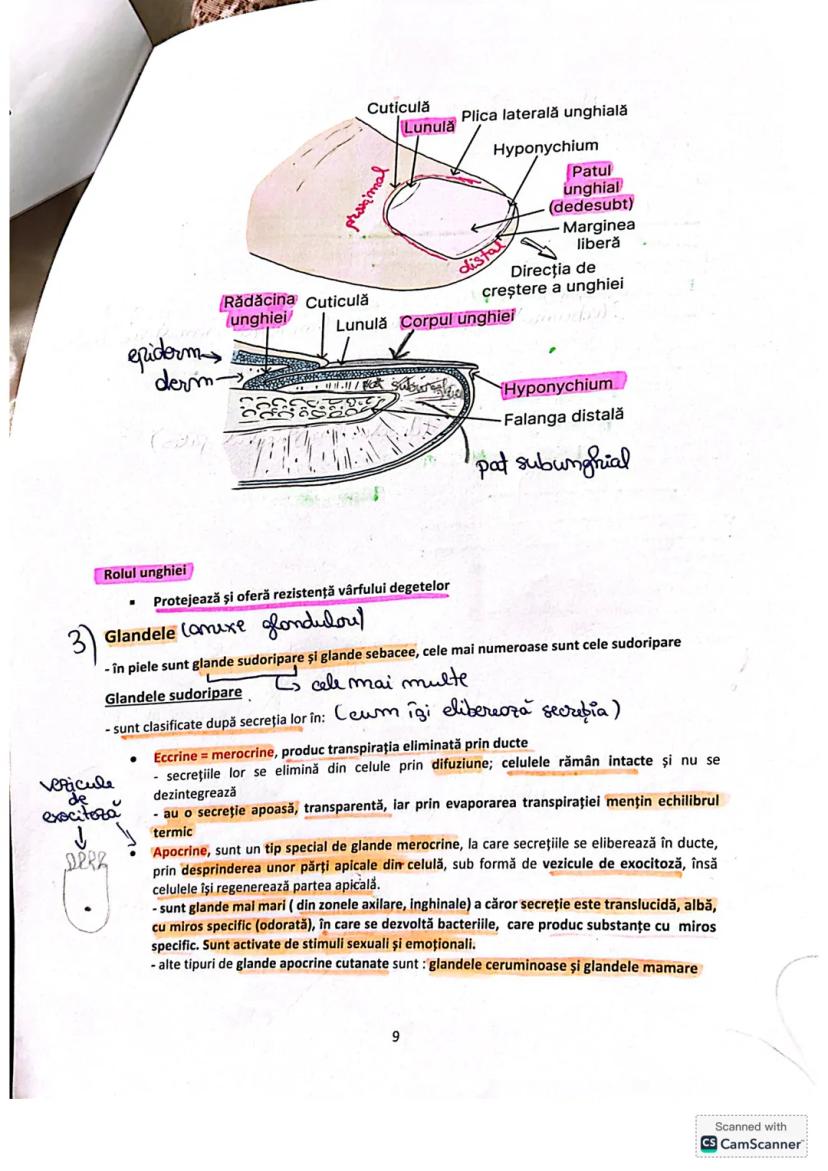 Cuticulă
Lunulă
Plica laterală unghială
Hyponychium
Patul
unghial
(dedesubt)
Marginea
liberă
proximal
distal
Direcția de
creștere a unghiei
Rădăcina
unghiei
Cuticulă
Lunulă
Corpul unghiei
epiderm
derm
pat subunghial
Hyponychium
Falanga distală
pat subunghial
Rolul unghiei
▪ Protejează și oferă rezistență vârfului degetelor
3) Glandele (anexe glandulare)
- în piele sunt glande sudoripare și glande sebacee, cele mai numeroase sunt cele sudoripare
cele mai multe
Glandele sudoripare
- sunt clasificate după secreția lor în: (cum își eliberează secreția)
• Eccrine = merocrine, produc transpirația eliminată prin ducte
- secrețiile lor se elimină din celule prin difuziune; celulele rămân intacte și nu se
dezintegrează
- au o secreție apoasă, transparentă, iar prin evaporarea transpirației mențin echilibrul
termic
vezicule
de
exocitoză
• Apocrine, sunt un tip special de glande merocrine, la care secrețiile se eliberează în ducte,
prin desprinderea unor părți apicale din celulă, sub formă de vezicule de exocitoză, însă
celulele își regenerează partea apicală.
- sunt glande mai mari ( din zonele axilare, inghinale) a căror secreție este translucidă, albă,
cu miros specific (odorată), în care se dezvoltă bacteriile, care produc substanțe cu miros
specific. Sunt activate de stimuli sexuali și emoționali.
- alte tipuri de glande apocrine cutanate sunt : glandele ceruminoase și glandele mamare
9
Scanned with
CS CamScanner